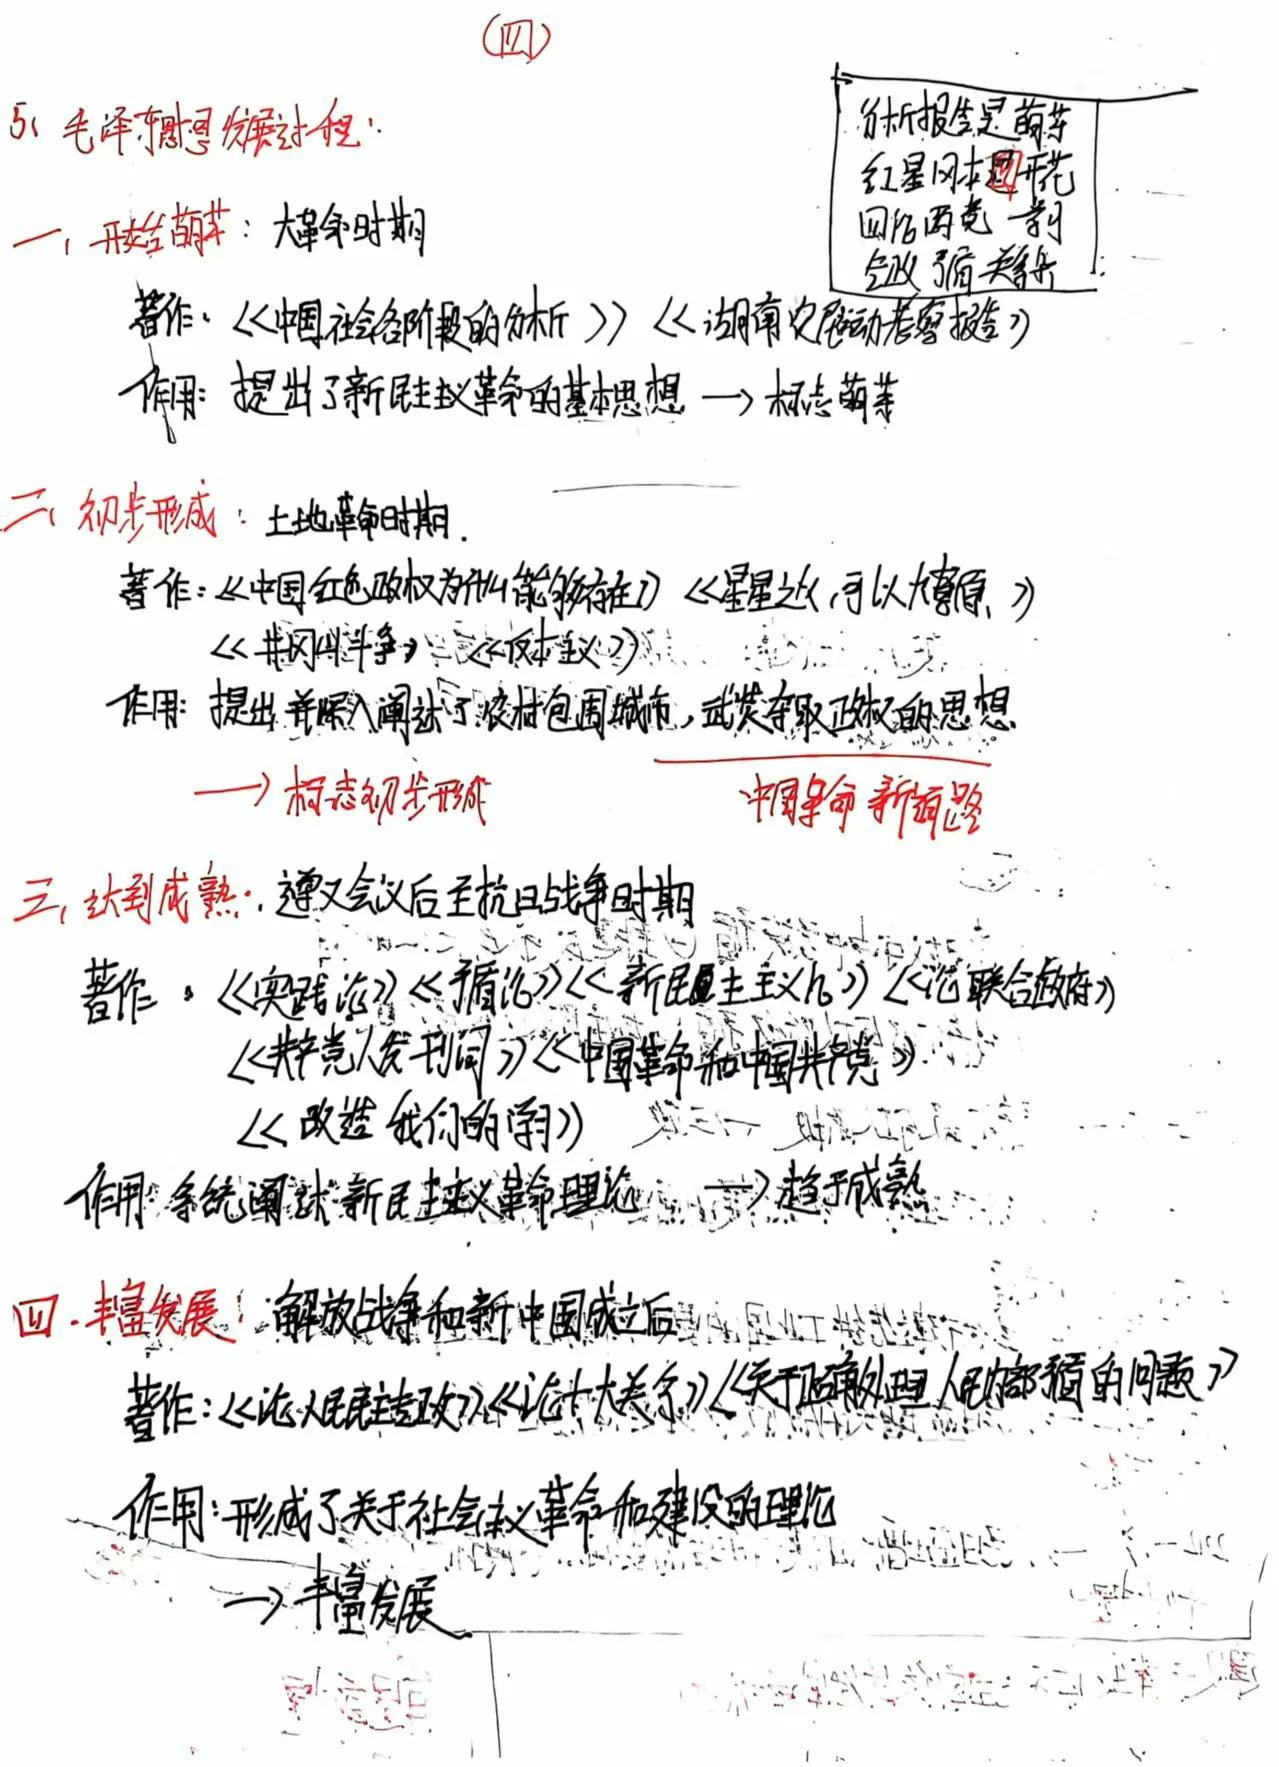 （四）
5、毛泽东思想发展过程：
分析报告是萌芽
红星冈本开花
四论两党一学习
会政盾关系
一、开始萌芽：大革命时期
著作：《中国社会各阶段的分析》《湖南农民运动考察报告》
作用：提出了新民主主义革命的基本思想 → 标志萌芽
二、初步形成：土地革命时期.
著作：《中国红色政权为什么能够存在》《星星之火，可以燎原》
《井冈山斗争》《反本主义》
作用：提出并深入阐述了农村包围城市，武装夺取政权的思想
→ 标志初步形成 中国革命新道路
三、达到成熟：遵义会议后至抗日战争时期
著作：《实践论》《矛盾论》《新民主主义论》《论联合政府》
《共产党人发刊词》《中国革命和中国共产党》
《改造我们的学习》
作用：系统阐述新民主主义革命理论 → 趋于成熟
四.丰富发展：解放战争和新中国成立后
著作：《论人民民主专政》《论十大关系》《关于正确处理人民内部矛盾的问题》
作用：形成了关于社会主义革命和建设的理论
→ 丰富发展